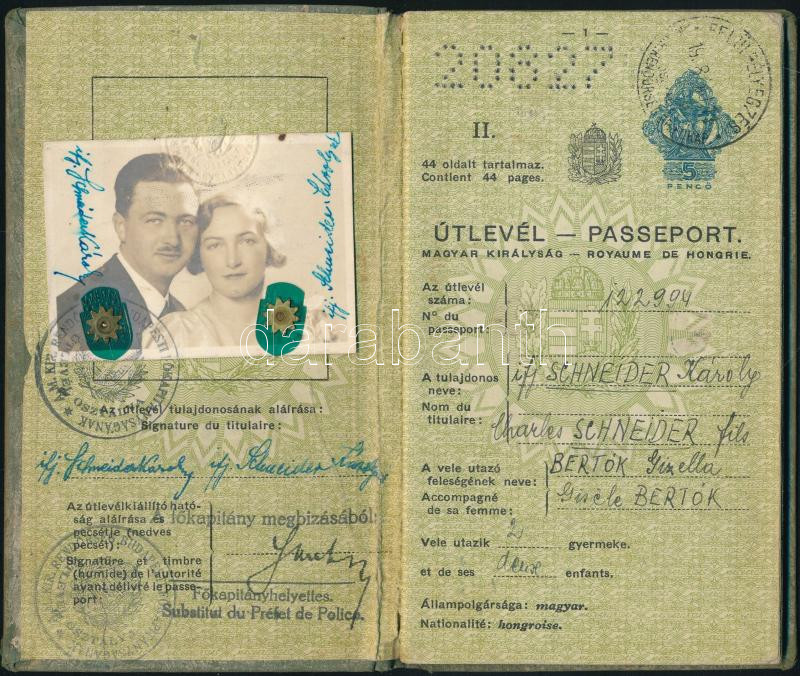 ifj. Schneider Károly
ifj. Schneider Károlyné
Az útlevél tulajdonosának aláírása:
Signature du titulaire:
ifj. Schneider Károly ifj. Schneider Károlyné
Az útlevélkiállító ható-
ság aláírása és
pecsétje (nedves
pecsét):
A főkapitány megbizásából:
Signature et timbre
(humide) de l'autorité
ayant délivré le passe-
port:
Főkapitányhelyettes.
Substitut du Préfet de Police.
— 1 —
20627
II.
44 oldalt tartalmaz.
Contient 44 pages.
5
PENGŐ
ÚTLEVÉL — PASSEPORT.
MAGYAR KIRÁLYSÁG — ROYAUME DE HONGRIE.
Az útlevél
száma:
N° du
passeport:
122994
A tulajdonos
neve:
ifj SCHNEIDER Károly
Nom du
titulaire:
Charles SCHNEIDER fils
A vele utazó
feleségének neve:
BERTÓK Gizella
Accompagné
de sa femme:
Gisèle BERTÓK
Vele utazik 2 gyermeke.
et de ses deux enfants.
Állampolgársága: magyar.
Nationalité: hongroise.
darabanth